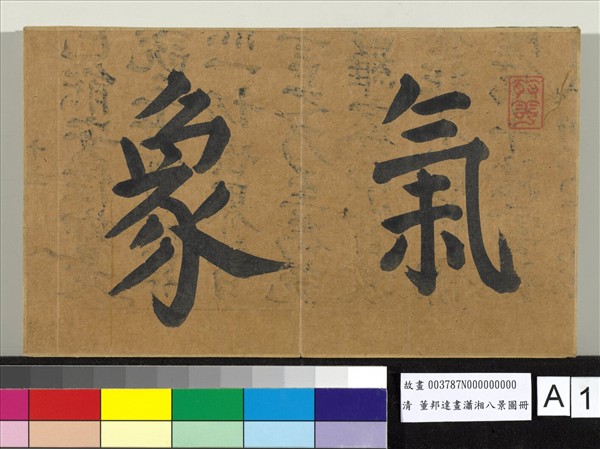 氣象
故畫 003787N000000000
清 董邦達畫瀟湘八景圖冊
A 1